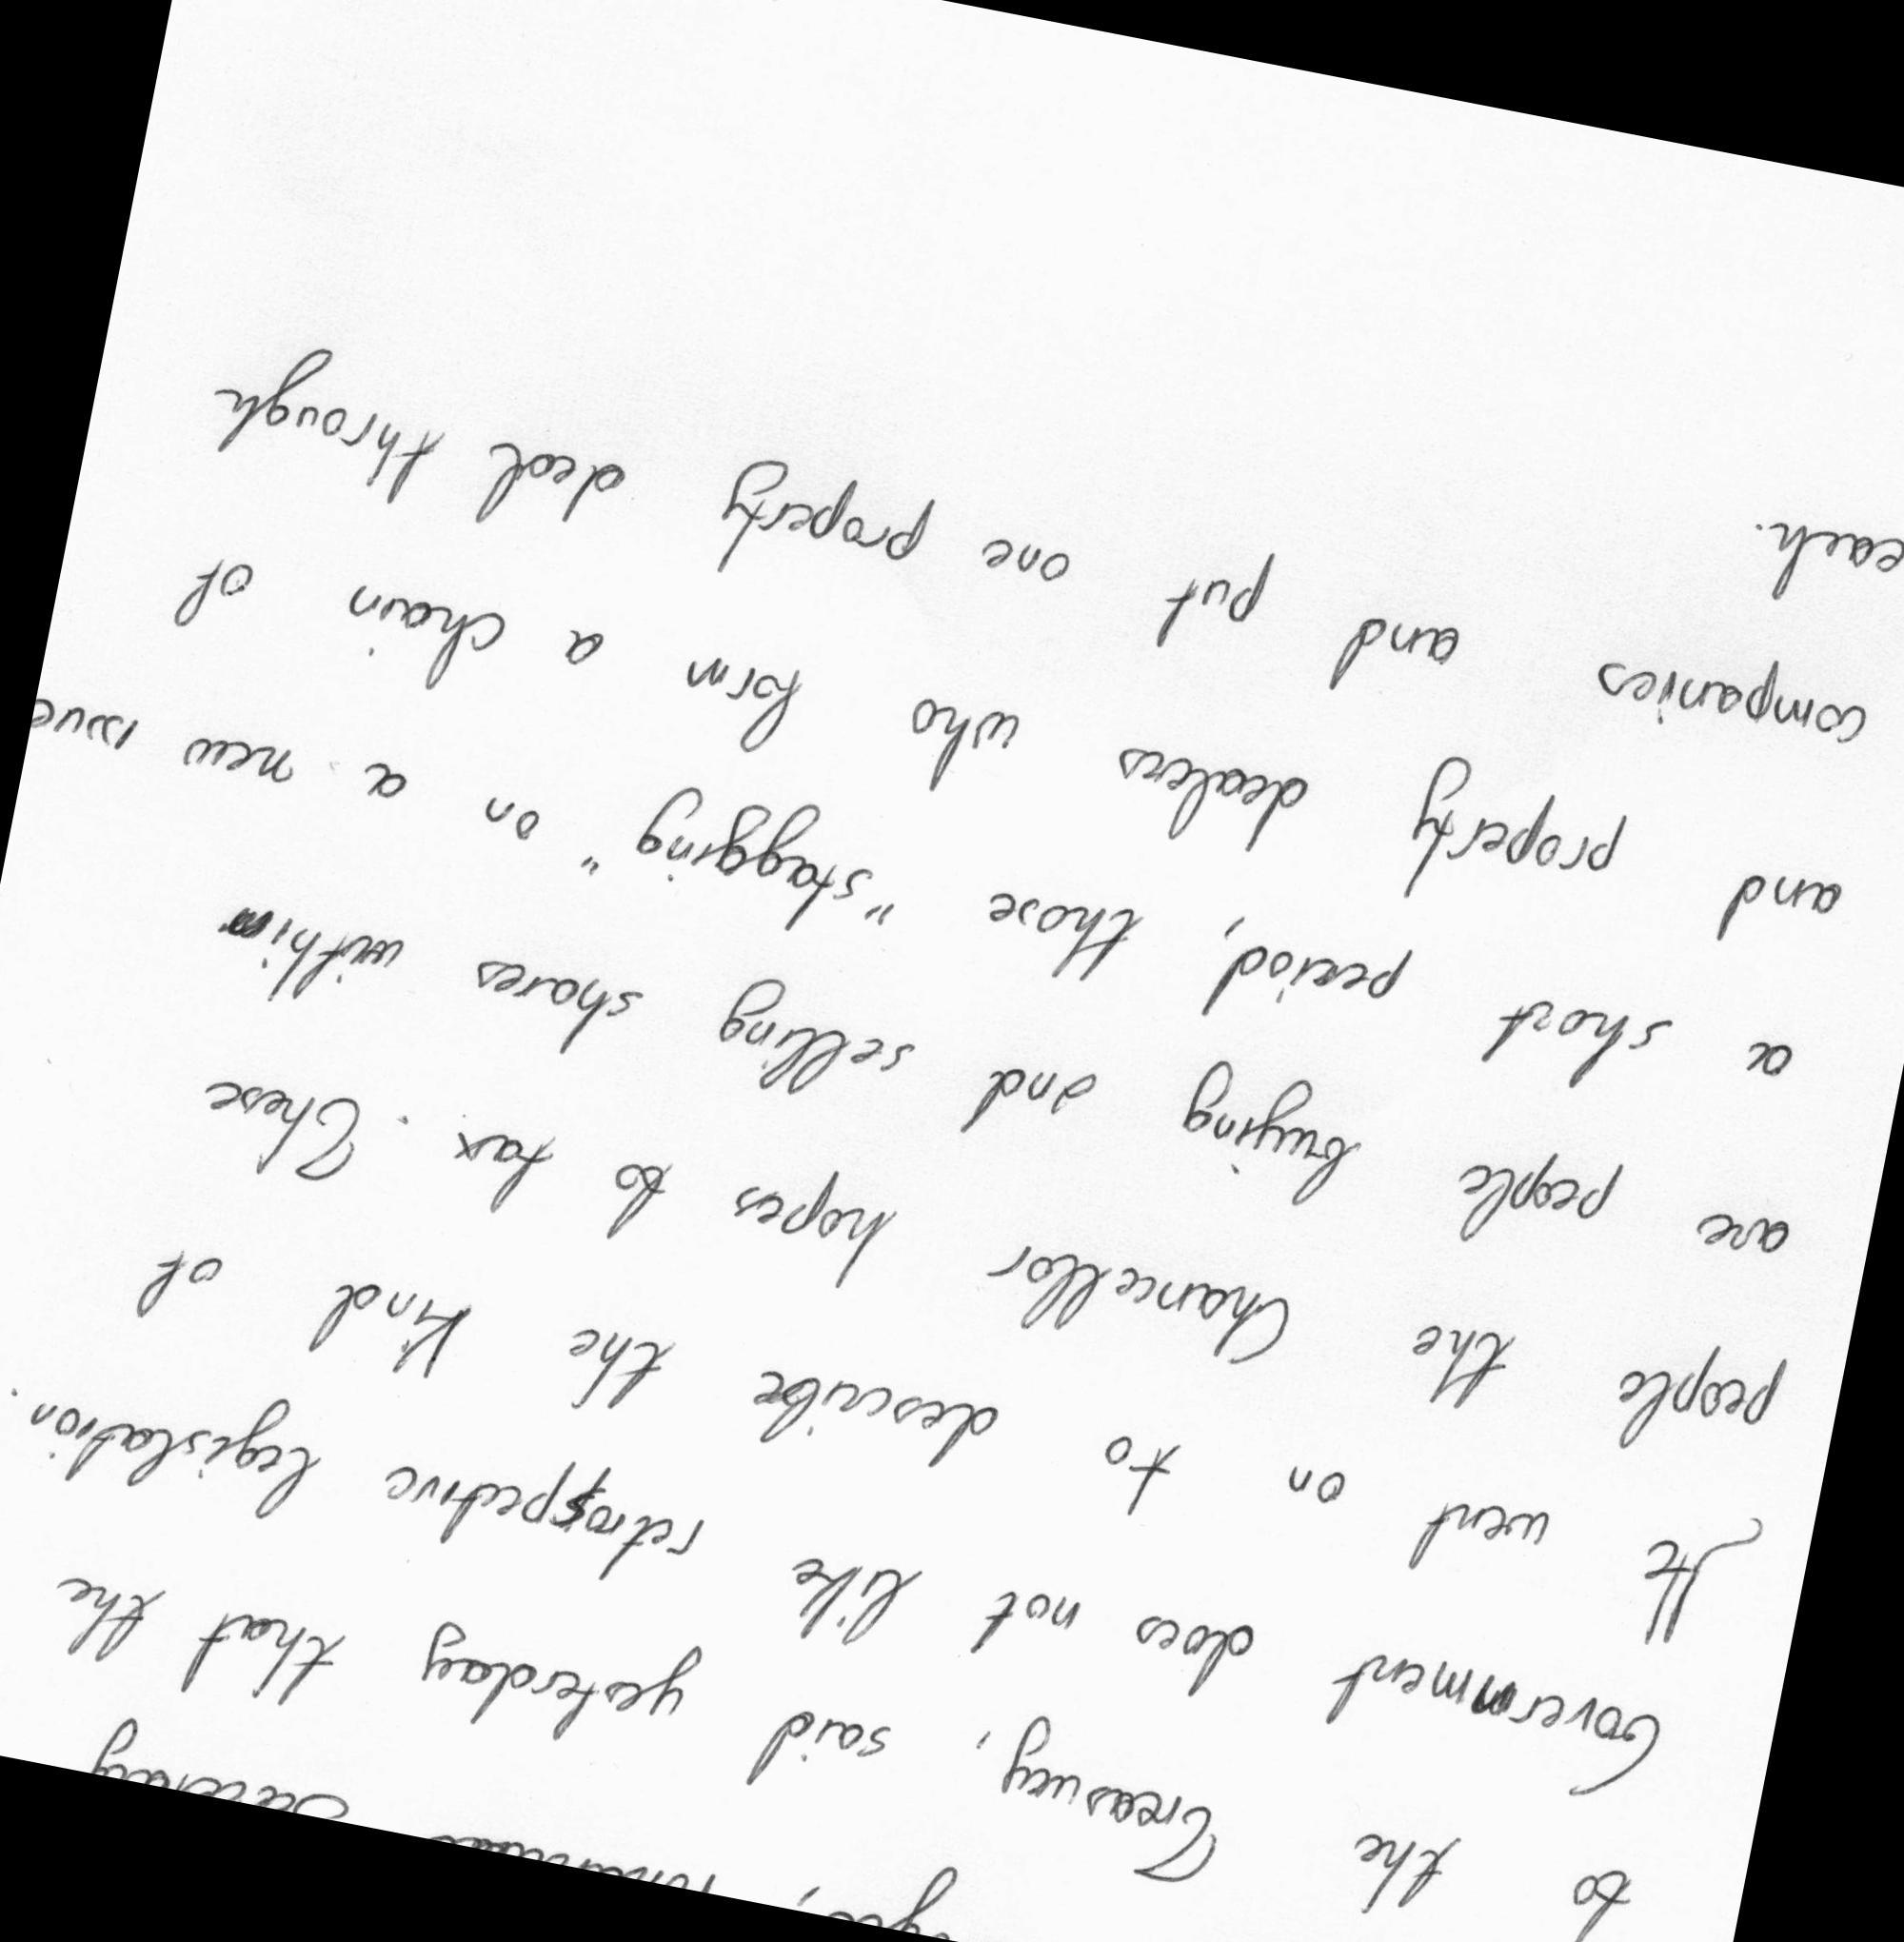 Financial Secretary
to the Treasury, said yesterday that the
Government does not like retrospective legislation.
He went on to describe the kind of
people the Chancellor hopes to tax. These
are people buying and selling shares within
a short period, those "stagging" on a new issue
and property dealers who form a chain of
companies and put one property deal through
each.